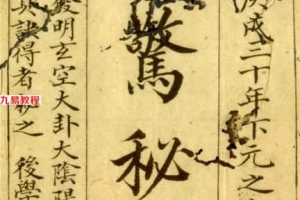 成三十年下元之
驚秘
發明玄空大卦大陰陽
訣得者秘之 後學
九易教程